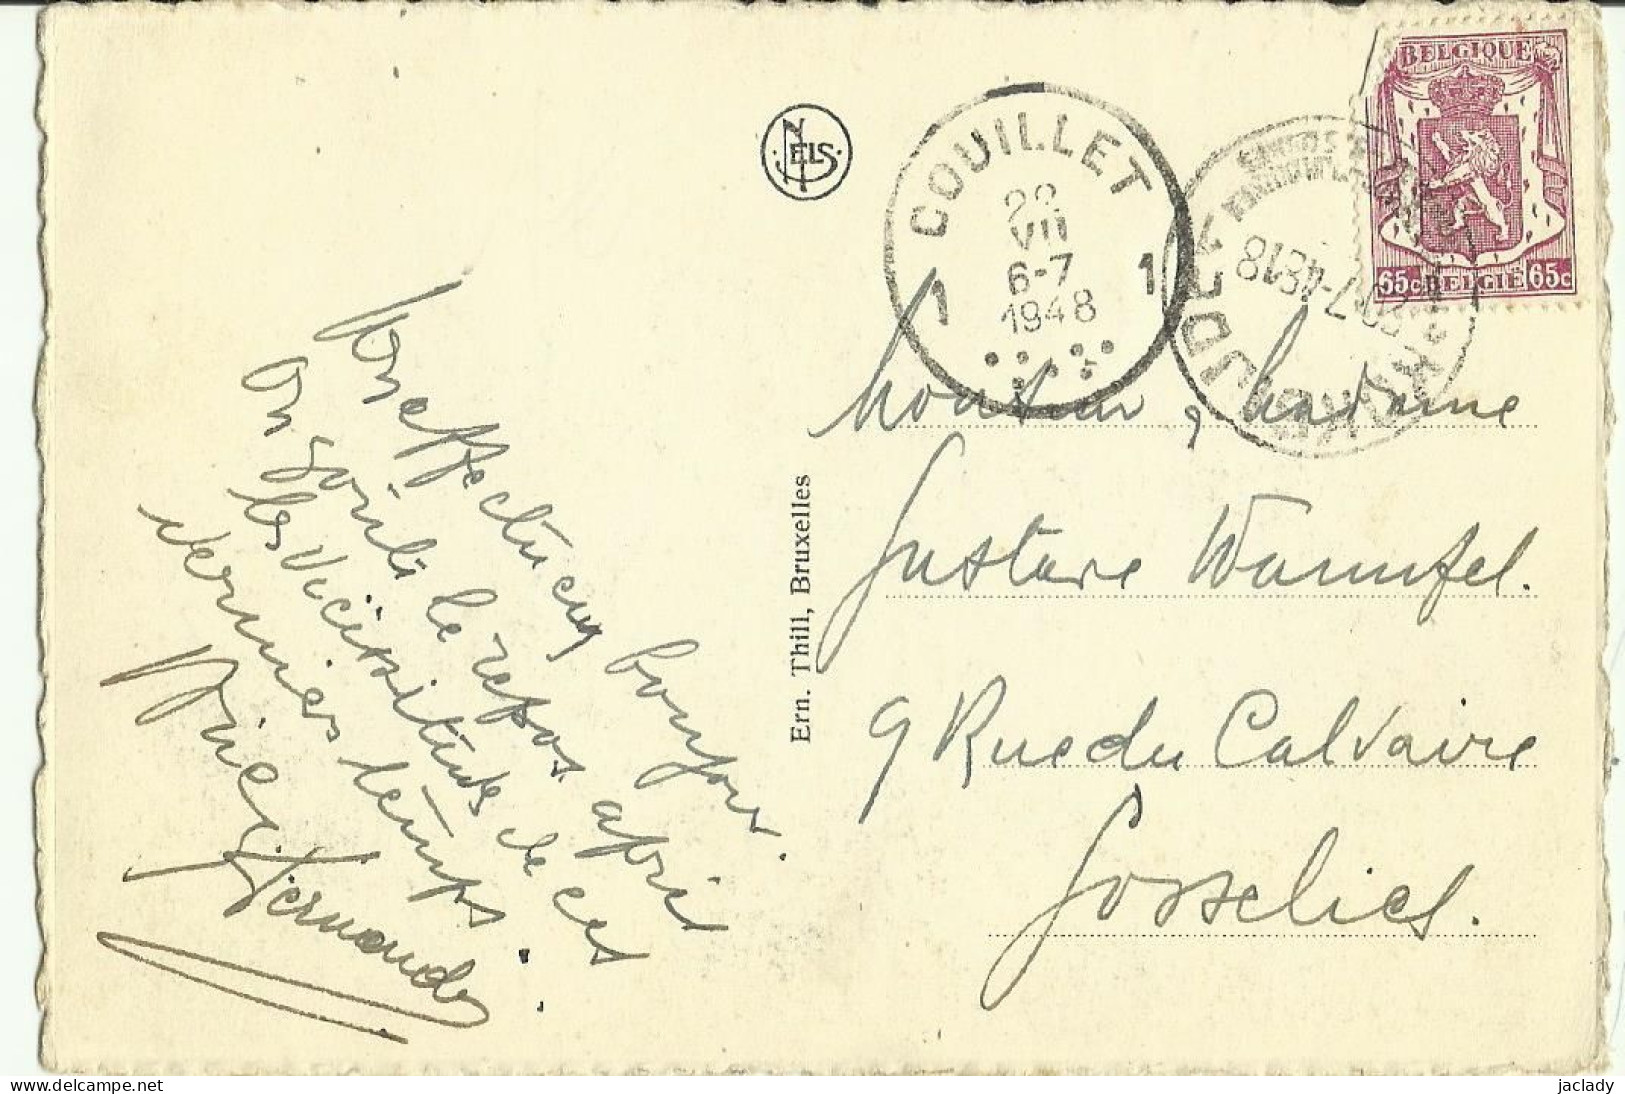 BELGIQUE
65c BELGIE 65c
COUILLET
22
VII
6-7
1948
1 1
KOKSIJDE
NELS
Ern. Thill, Bruxelles
Monsieur, Madame
Gustave Wannifel.
9 Rue du Calvaire
Gosselies.
Un affectueux bonjour.
On goûte le repos après
les vicissitudes de ces
derniers temps.
Fernande
delcampe.net
jaclady